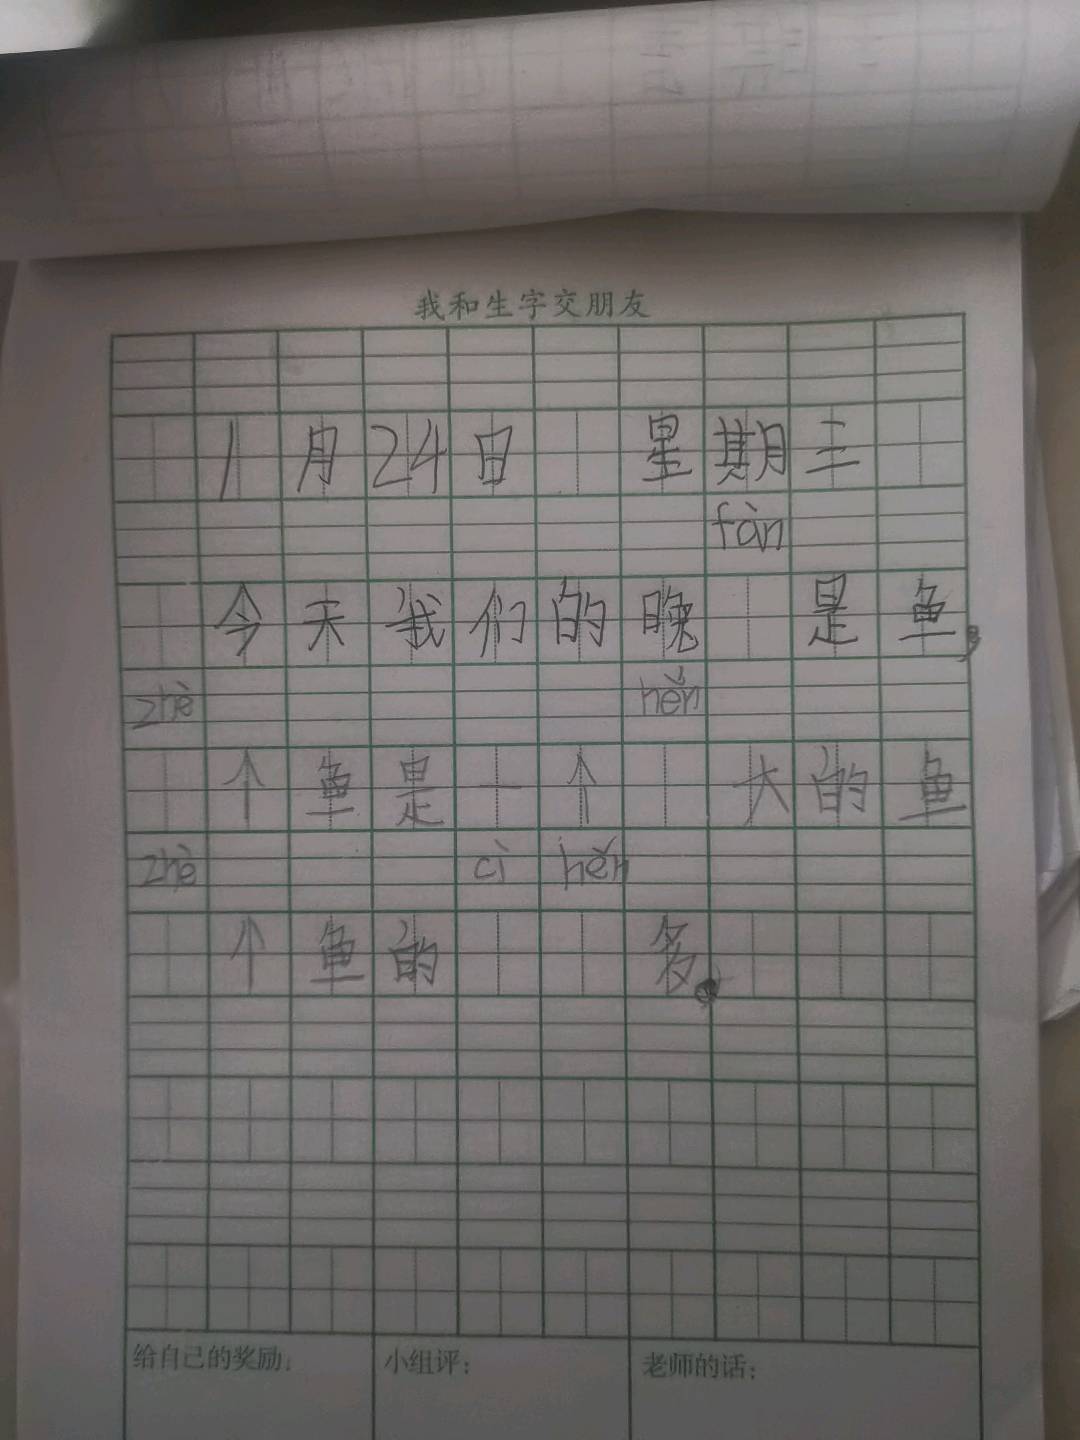 我和生字交朋友
1月24日 星期三
fàn
今天我们的晚 是鱼,
zhè hěn
个鱼是一个 大的鱼
zhè cì hěn
个鱼的 多。
给自己的奖励: 小组评: 老师的话: